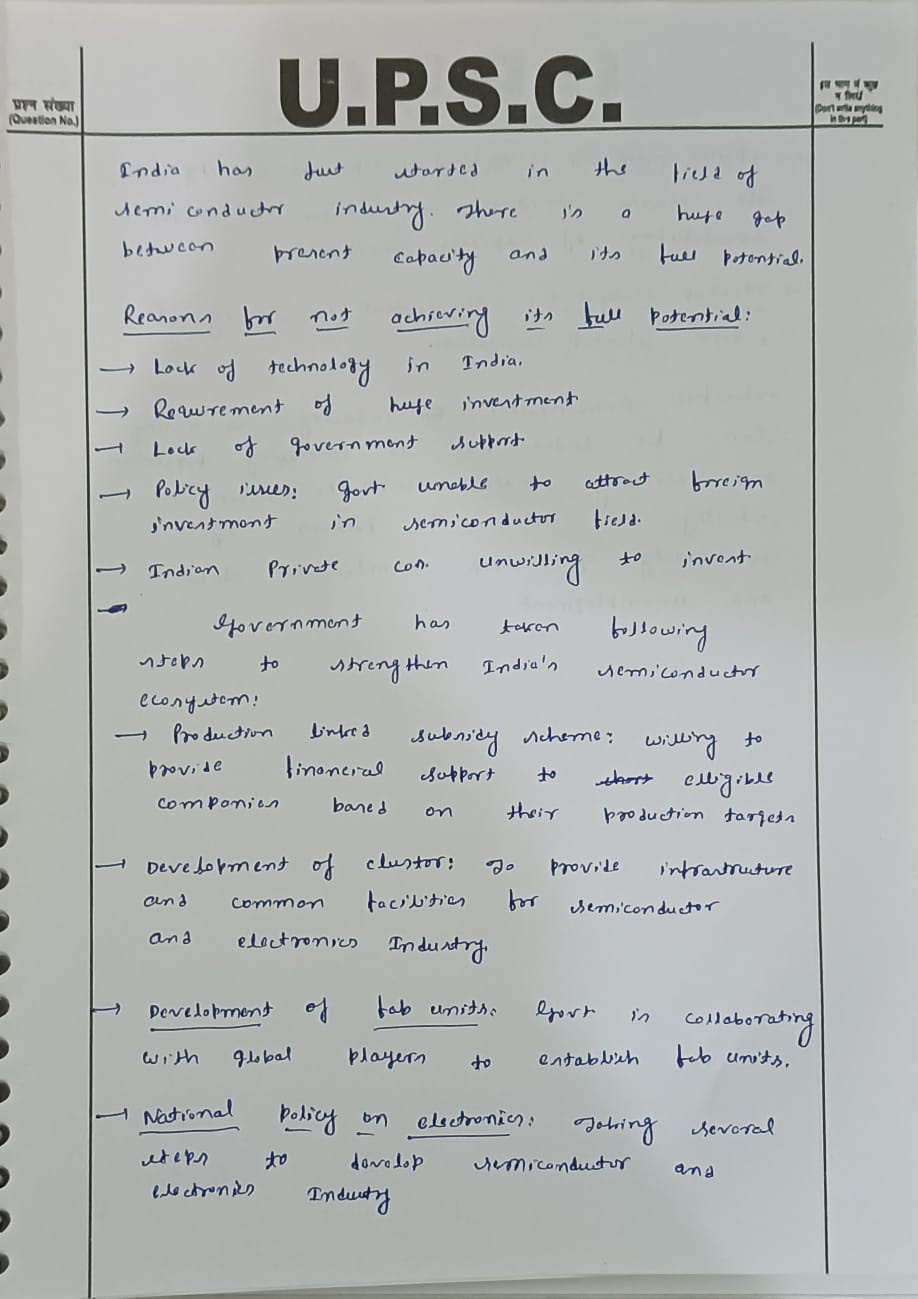 U.P.S.C.
प्रश्न संख्या
(Question No.)
इस भाग में कुछ
न लिखें
(Don't write anything
in this part)
India has just started in the field of
semi conductor industry. There is a huge gap
between present capacity and its full potential.
Reasons for not achieving its full potential:
→ Lack of technology in India.
→ Requirement of huge investment
→ Lack of government support
→ Policy issues: govt unable to attract foreign
investment in semiconductor field.
→ Indian Private cos. unwilling to invest
Government has taken following
steps to strengthen India's semiconductor
ecosystem:
→ Production linked subsidy scheme: willing to
provide financial support to elligible
companies based on their production targets
→ Development of clustor: To provide infrastruture
and common facilities for semiconductor
and electronics Industry.
→ Development of fab units. Govt is collaborating
with global players to establish fab units.
→ National policy on electronics: Taking several
steps to develop semiconductor and
electronics Industry